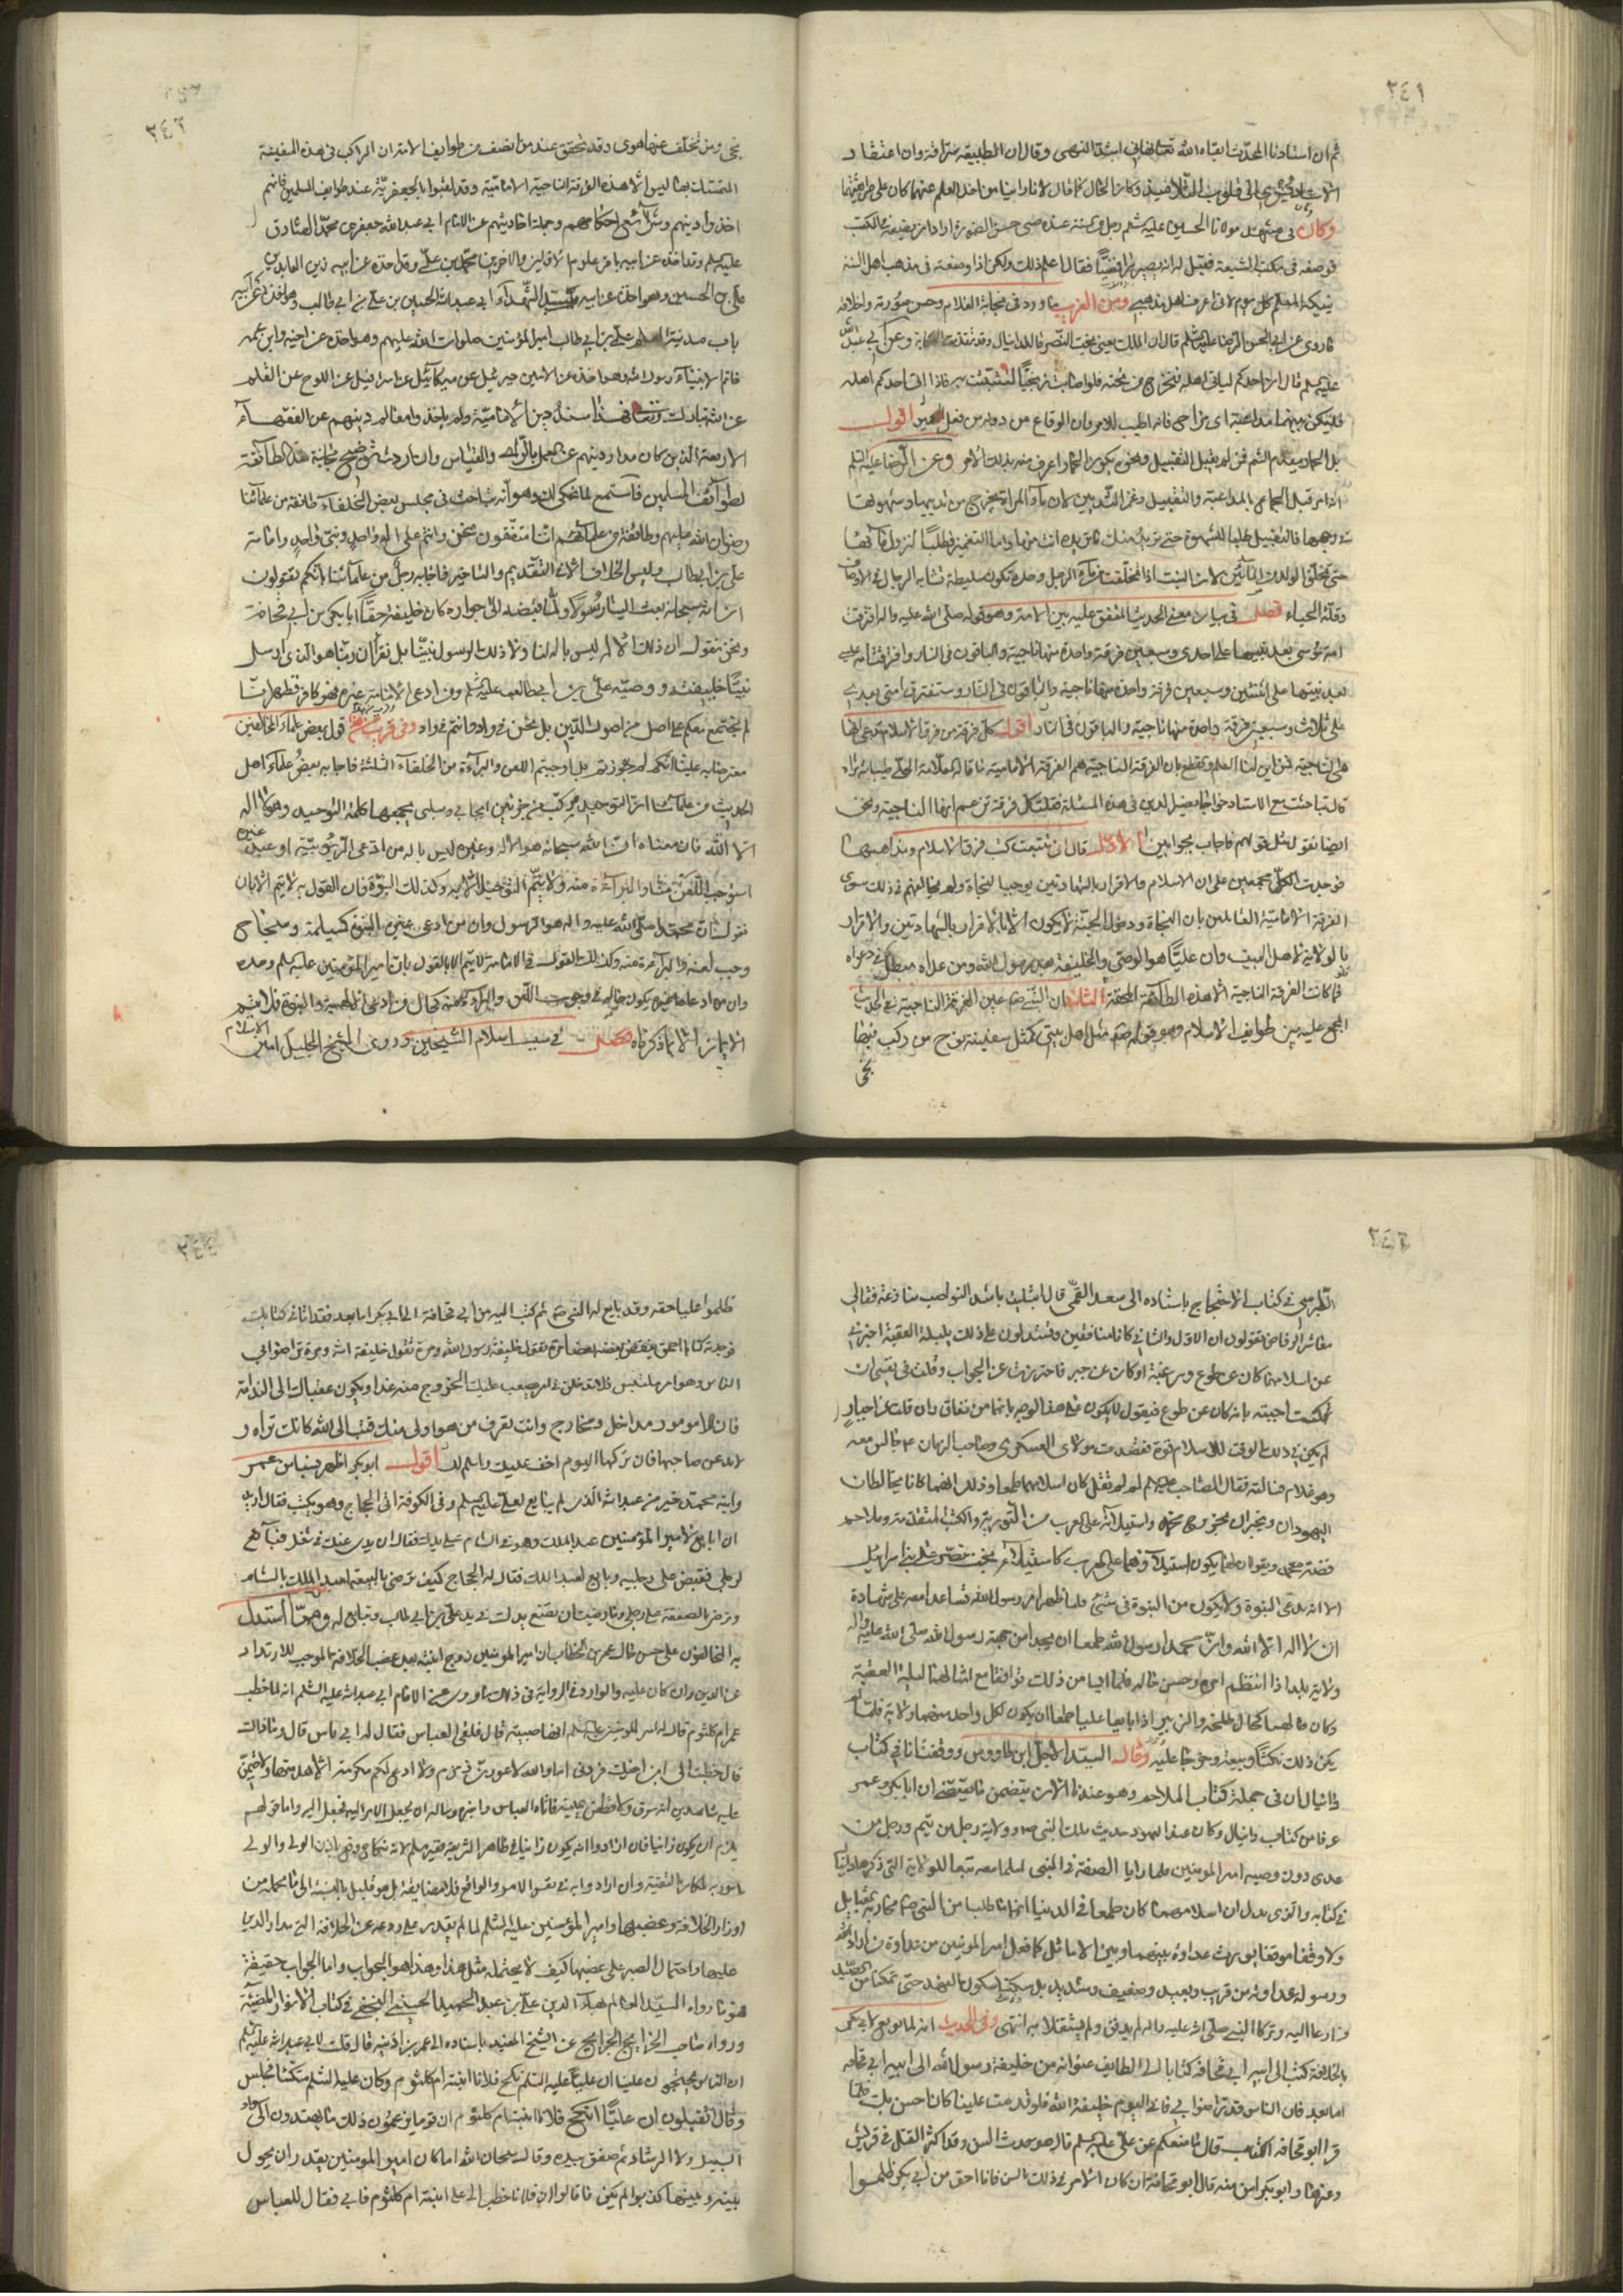 ٢٤١
ثم ان استادنا المحدث ابقاه الله تعالى
الاستاد يسري الى قلوب التلاميذ وكان الحال كما قال لانا راينا من اخذ العلم عنهما كان على طريقتهما
وكان في مشهد مولانا الحسين عليه السلم رجل من السنة عنده صبي حسن الصورة اراد ان يضيفه
فوضعه في مكتب الشيعة فقيل له انه يصير رافضيا فقال اعلم ذلك ولكن اذا وضعته في مذهب اهل السنة
ينيكه المعلم كل يوم لاني اعرف اهل مذهبي ومن الغريب ما ورد في نجابة الغلام وحسن صورته واخلاقه
ما روي عن ابي الحسن الرضا عليه السلم قال ان الملك يعني بخت النصر قال لدانيال
عليه السلم قال ان احدكم لياتي اهله فتخرج من تحته فلو اصابت زنجيا لتشبثت به فاذا اتى احدكم اهله
فليكن بينهما مداعبة اي مزاح فانه اطيب للامر وان الوقاع من دونه من فعل الحمير اقول
بل الحمار يقدم الشم فمن لم يفعل التقبيل ونحوه يكون الحمار اعرف منه بذلك الامر وعن الرضا عليه السلم
انه امر قبل الجماع بالمداعبة والتقبيل وغمز الثديين لان ماء المراة يخرج من ثدييها وشهوتها
وجهها فالتقبيل طلبا للشهوة حتى تريد منك ما تريده انت منها واما التغميز فطلبا لنزول مائها
حتى يتخلق الولد من المائين لان البنت اذا تخلقت من ماء الرجل وحده تكون سليطة تشابه الرجال في الاوصاف
وقلة الحياء فصل في بيان معنى الحديث المتفق عليه بين الامة وهو قوله صلى الله عليه واله افترقت
امة موسى بعد نبيها على احدى وسبعين فرقة واحدة منها ناجية والباقون في النار وافترقت امة عيسى
بعد نبيها على اثنتين وسبعين فرقة واحدة منها ناجية والباقون في النار وستفترق امتي بعدي
على ثلاث وسبعين فرقة واحدة منها ناجية والباقون في النار اقول كل فرقة من فرق الاسلام تدعي انها
هي الناجية فمن اين لنا العلم والقطع بان الفرقة الناجية هم الفرقة الامامية ما قاله العلامة الحلي طيب الله ثراه
قال تباحثت مع الاستاد خواجا نصير الدين في هذه المسئلة فقلت كل فرقة تزعم انها الناجية ونحن
ايضا نقول مثل قولهم فاجاب بجوابين الاول قال اني تتبعت كتب فرق الاسلام ومذاهبها
فوجدت الكل مجمعين على ان الاسلام والاقرار بالشهادتين يوجب النجاة ولم يخالفهم في ذلك سوى
الفرقة الامامية القائلين بان النجاة ودخول الجنة لا يكون الا بالاقرار بالشهادتين والاقرار
بالولاية لاهل البيت وان عليا هو الوصي والخليفة بعد رسول الله ومن عداه مبطل في دعواه
فكانت الفرقة الناجية الا هذه الطائفة المحقة الثاني ان النبي صم عين الفرقة الناجية في الحديث
المجمع عليه بين طوايف الاسلام وهو قوله صم مثل اهل بيتي كمثل سفينة نوح من ركب فيها
نجى
٢٤٢
نجى ومن تخلف عنها هوى وقد تحقق عند من انصف من طوايف الامة ان الراكب في هذه السفينة
المتمسك بها ليس الا هذه الفرقة الناجية الامامية وقد لقبوا بالجعفرية عند طوايف المسلمين فانهم
اخذوا دينهم وشرائع احكامهم وجملة احاديثهم عن الامام ابي عبدالله جعفر بن محمد الصادق
عليه السلم وقد اخذه عن ابيه باقر علوم الاولين والاخرين محمد بن علي وقد اخذه عن ابيه زين العابدين
علي بن الحسين وهو اخذه عن ابيه سيد الشهداء ابي عبدالله الحسين بن علي بن ابي طالب وهو اخذه عن ابيه
باب مدينة العلم علي بن ابي طالب امير المؤمنين صلوات الله عليهم وهو اخذه عن اخيه وابن عمه
خاتم الانبياء رسول الله وهو اخذه عن الامين جبرئيل عن ميكائيل عن اسرافيل عن اللوح عن القلم
عن الله تبارك وتعالى فهذا سند دين الامامية ولم ياخذوا معالم دينهم عن الفقهاء
الاربعة الذين كان مدار دينهم عن العمل بالراي والقياس وان اردت توضيح نجابة هذه الطائفة
لطوائف المسلمين فاستمع لما نحكي لك وهو انه تباحث في مجلس بعض الخلفاء طائفة من علمائنا
رضوان الله عليهم وطائفة من علمائهم اننا متفقون نحن وانتم على اله واحد ونبي واحد وامامة
علي بن ابي طالب وليس الخلاف الا في التقديم والتاخير فاجابه رجل من علمائنا انكم تقولون
ان الله سبحانه بعث الينا رسولا ولما قبضه الى جواره كان خليفته حقا ابا بكر بن ابي قحافة
ونحن نقول ان ذلك الاله ليس باله لنا ولا ذلك الرسول نبينا بل نقر ان ربنا هو الذي ارسل
نبيا خليفته ووصيه علي بن ابي طالب عليه السلم ومن ادعى الامامة غيره فهو كافر فظهر اننا
لم نجتمع معكم على اصل من اصول الدين بل نحن في واد وانتم في واد وفي قرب من هذا قول بعض علماء المخالفين
معترضا به علينا انكم لم جوزتم بل اوجبتم اللعن والبراءة من الخلفاء الثلثة فاجابه بعض علماء اهل
الحديث من علمائنا ان التوحيد مركب من جزئين ايجابي وسلبي يجمعها كلمة التوحيد وهو لا اله
الا الله فان معناه ان الله سبحانه هو الاله وغيره ليس باله من ادعى الربوبية او عبد غيره
استوجب اللعن منا والبراءة منه ولا يتم التوحيد الا به وكذلك النبوة فان القول به لا يتم الا بان
نقول بان محمدا صلى الله عليه واله هو الرسول وان من ادعى غيره النبوة كمسيلمة وسجاح
وجب لعنه والبراءة منه وكذلك القول في الامامة لا يتم الا بالقول بان امير المؤمنين عليه السلم وحده
وان من ادعاها غيره يكون حاله في وجوب اللعن والبراءة منه كحال من ادعى الالهية والنبوة فلا يتم
الايمان الا بما ذكرناه فصل في سبب اسلام الشيخين وروى الشيخ الجليل امين الاسلام
٢٤٢
الطبرسي في كتاب الاحتجاج باسناده الى سعد القمي قال ابتليت باشد النواصب منازعة فقال لي
معاشر الروافض تقولون ان الاول والثاني كانا منافقين وتستدلون على ذلك بليلة العقبة اخبرني
عن اسلامهما كان عن طوع ورغبة او كان عن جبر فاحترزت عن الجواب وقلت في نفسي ان
كنت اجبته بانه كان عن طوع فيقول لا يكون على هذا الوجه بايمانهما من نفاق وان قلت عن اجبار
لم يكن في ذلك الوقت للاسلام قوة فقصدت مولاي العسكري وصاحب الزمان ع جالس معه
وهو غلام فسالته فقال الصاحب عليه السلم لم لم تقل كان اسلامهما طمعا وذلك انهما كانا يخالطان
اليهود ان ويخبران بخروج محمد واستيلائه على العرب من التورية والكتب المتقدمة وملاحم
قصة محمد ويقولان لهما يكون استيلاؤه على العرب كاستيلاء بخت نصر على بني اسرائيل
الا انه يدعي النبوة ولا يكون من النبوة في شيء فلما ظهر امر رسول الله تساعدا معه على شهادة
ان لا اله الا الله وان محمدا رسول الله طمعا ان يجدا من جهة رسول الله صلى الله عليه واله
ولاية بلد اذا انتظم امره وحسن حاله فلما ايسا من ذلك توافقا مع امثالهما ليلة العقبة
وكان حالهما كحال طلحة والزبير اذ بايعا عليا طمعا ان يكون لكل واحد منهما ولاية فلما لم
يكن ذلك نكثا بيعته وخرجا عليه وقال السيد الاجل ابن طاووس ووقفت انا في كتاب
دانيال ان في جملة كتاب الملاحم وهو عندنا الان يتضمن ما يقتضي ان ابا بكر وعمر
عرفا من كتاب دانيال وكان عند اليهود حديث ملك النبي صم وولاية رجل من تيم ورجل من
عدي دون وصيه امير المومنين فلما رايا الصفة في النبي اسلما معه تبعا للولاية التي ذكرها دانيال
في كتابه والذي يدل ان اسلامهما كان طمعا في الدنيا
ولا وقفا موقفا يورث عداوة بينهما وبين الاماثل كما فعل امير المومنين من عداوة من اراد الله
ورسوله عداوته من قريب وبعيد وضعيف وشديد بل سكنا سكون الفهد حتى تمكنا من الصيد
وزادعا اليه وتركا النبي صلى الله عليه واله لم يدفن ولم يشتغلا به انتهى وفي الحديث انه لما بويع لابي بكر
بالخلافة كتب الى ابيه ابي قحافة كتابا الى الطايف عنوانه من خليفة رسول الله الى ابيه ابي قحافة
اما بعد فان الناس قد تراضوا بي فاني اليوم خليفة الله فلو قدمت علينا كان احسن بك فلما
قرا ابو قحافة الكتاب قال ما منعكم عن علي عليه السلم قال هو حدث السن وقد اكثر القتل في قريش
وغيرها وابو بكر اسن منه قال ابو قحافة ان كان الامر في ذلك بالسن فانا احق من ابي بكر ظلموا
ظلموا عليا حقه وقد بايع له النبي صم ثم كتب اليه من ابي قحافة الى ابي بكر اما بعد فقد اتاني كتابك
فوجدته كتاب احمق ينقض بعضه بعضا مرة تقول خليفة رسول الله ومرة تقول خليفة الله ومرة تراضوا بي
الناس وهو امر ملتبس فلا تدخلن في امر يصعب عليك الخروج منه غدا ويكون عقباك الى الندامة
فان للامور مداخل ومخارج وانت تعرف من هو اولى منك فتب الى الله كانك تراه و
لا تدعن صاحبها فان تركها اليوم اخف عليك واسلم لك اقول ابو بكر اظهر
وابنه محمد خير من عبد الله الذي لم يبايع لعلي عليه السلم وفي الكوفة اتى الحجاج وهو يكتب فقال اريد
ان ابايع لامير المؤمنين عبد الملك وهو في الشام على يدك فقال ان يدي عنك في شغل فبايع
لرجلي فقبض على رجليه وبايع لعبد الملك فقال له الحجاج كيف ترضى بالبيعة لعبد الملك بالشام
وترضى بالصفقة على رجلي وما رضيت ان تضع يدك في يد علي بن ابي طالب وتبايع له ومما استدل
به المخالفون على حسن حال عمر بن الخطاب ان امير المومنين زوج ابنته بعد غصب الخلافة الموجب للارتداد
عن الدين
عمر ام كلثوم قال له امير المومنين عليه السلم انها صبية قال فلقي العباس فقال له ابي باس قال وما ذاك
قال خطبت الى ابن اخيك فردني اما والله لاعورن زمزم ولا ادع لكم مكرمة الا هدمتها ولاقيمن
عليه شاهدين انه سرق ولاقطعن يمينه فاتاه العباس واخبره وساله ان يجعل الامر اليه فجعل اليه واما قولهم
يلزم ان يكون زانيا فان ارادوا انه يكون زانيا في ظاهر الشريعة فغير مسلم لانه نكاح وقع باذن الولي والولي

اوزار الخلافة وغصبها وامير المؤمنين عليه السلم لما لم يقدر على ردعه عن الخلافة التي مدار الدين
عليها واحتمال الصبر على غصبها كيف لا يحتمل مثل هذا وهذا هو الجواب واما الجواب حقيقة
فهو ما رواه السيد العالم بهاء الدين علي بن عبد الحميد الحسيني النجفي في كتاب الانوار المضيئة
ورواه صاحب الخرايج والجرايح عن الشيخ المفيد باسناده الى عمر بن اذينة قال قلت لابي عبد الله عليه السلم
ان الناس يحتجون علينا ان عليا عليه السلم نكح فلانا ابنته ام كلثوم وكان عليه السلم متكئا فجلس
وقال اتقبلون ان عليا انكح فلانا ابنته ام كلثوم ان قوما يزعمون ذلك ما يهتدون الى سواء
السبيل ولا الرشاد ثم صفق بيده وقال سبحان الله اما كان امير المومنين يقدر ان يحول
بينه وبينها كذبوا لم يكن ما قالوا ان فلانا خطب الى علي ابنته ام كلثوم فابى فقال للعباس